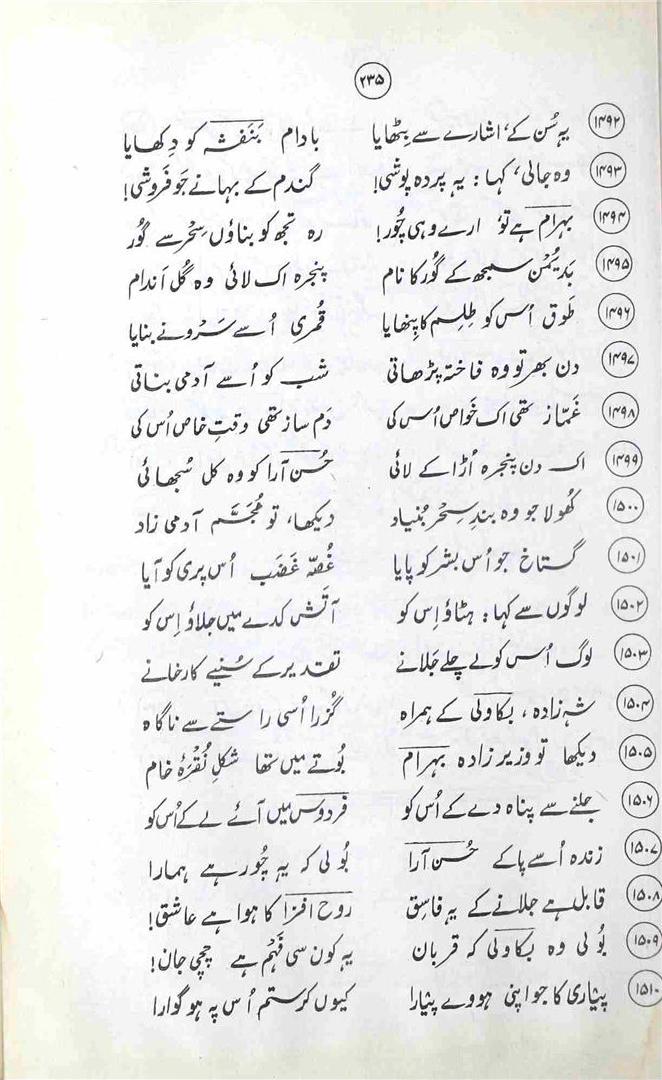 ۲۳۵
۱۴۹۲ یہ سُن کے، اشارے سے بِٹھایا بادام بَنَفشہ کو دِکھایا
۱۴۹۳ وہ جالی، کہا: یہ پردہ پوشی! گندم کے بہانے جَو فَروشی!
۱۴۹۴ بہرام ہے تو، ارے وہی چُور! رہ تجھ کو بناؤں سِحْر سے گُور
۱۴۹۵ بَدیُمْن سمجھ کے گُور کا نام پنجرہ اک لائی وہ گُل اَندام
۱۴۹۶ طَوق اُس کو طِلِسم کا پنھایا قُمری اُسے سَرْو نے بنایا
۱۴۹۷ دن بھر تو وہ فاختہ پڑھاتی شب کو اُسے آدمی بناتی
۱۴۹۸ غَمّاز تھی اک خَواص اُس کی دَم ساز تھی وقتِ خاص اُس کی
۱۴۹۹ اک دن پنجرہ اُڑا کے لائی حُسن آرا کو وہ کل سُجھائی
۱۵۰۰ کُھولا جو وہ بندِ سِحْر بُنیاد دیکھا، تو مُجَسَّم آدمی زاد
۱۵۰۱ گستاخ جو اُس بشر کو پایا غُصّہ غَضَب اُس پری کو آیا
۱۵۰۲ لوگوں سے کہا: ہٹاؤ اِس کو آتَش کدے میں جلاؤ اِس کو
۱۵۰۳ لوگ اُس کو لے چلے جَلانے تقدیر کے سُنیے کارخانے
۱۵۰۴ شہ زادہ، بکاولی کے ہمراہ گُزرا اُسی راستے سے ناگاہ
۱۵۰۵ دیکھا تو وزیر زادہ بہرام بُوتے میں تھا شکلِ نُقرۂ خام
۱۵۰۶ جلنے سے پناہ دے کے اُس کو فردوس میں آئے لے کے اُس کو
۱۵۰۷ زندہ اُسے پا کے حُسن آرا بُولی کہ یہ چُور ہے ہمارا
۱۵۰۸ قابل ہے جلانے کے یہ فاسِق روح افزا کا ہوا ہے عاشق!
۱۵۰۹ بُولی وہ بکاولی کہ قربان یہ کون سی فَہْم ہے چچی جان!
۱۵۱۰ پیاری کا جو اپنی ہووے پیارا کیوں کر ستم اُس پہ ہو گوارا